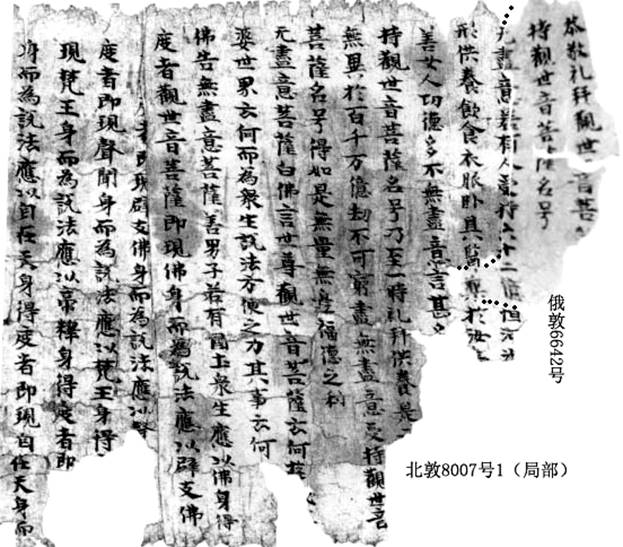 恭敬礼拜觀世音菩
持觀世音菩薩名号
无盡意若有人受持六十二億恒河沙
形供養飲食衣服卧具醫藥於汝
善女人功德多不無盡意言甚
持觀世音菩薩名号乃至一時礼拜供養是
無異於百千万億劫不可窮盡無盡意受持觀世音
菩薩名号得如是無量無邊福德之利
无盡意菩薩白佛言世尊觀世音菩薩云何
婆世界云何而為衆生說法方便之力其事云何
佛告無盡意菩薩善男子若有國土衆生應以佛身得
度者觀世音菩薩即現佛身而為說法應以辟支佛
者即現辟支佛身而為說法應以聲
度者即現聲聞身而為說法應以梵王身得
現梵王身而為說法應以帝釋身得度者即
身而為說法應以自在天身得度者即現自在天身而
俄敦6642号
北敦8007号1（局部）